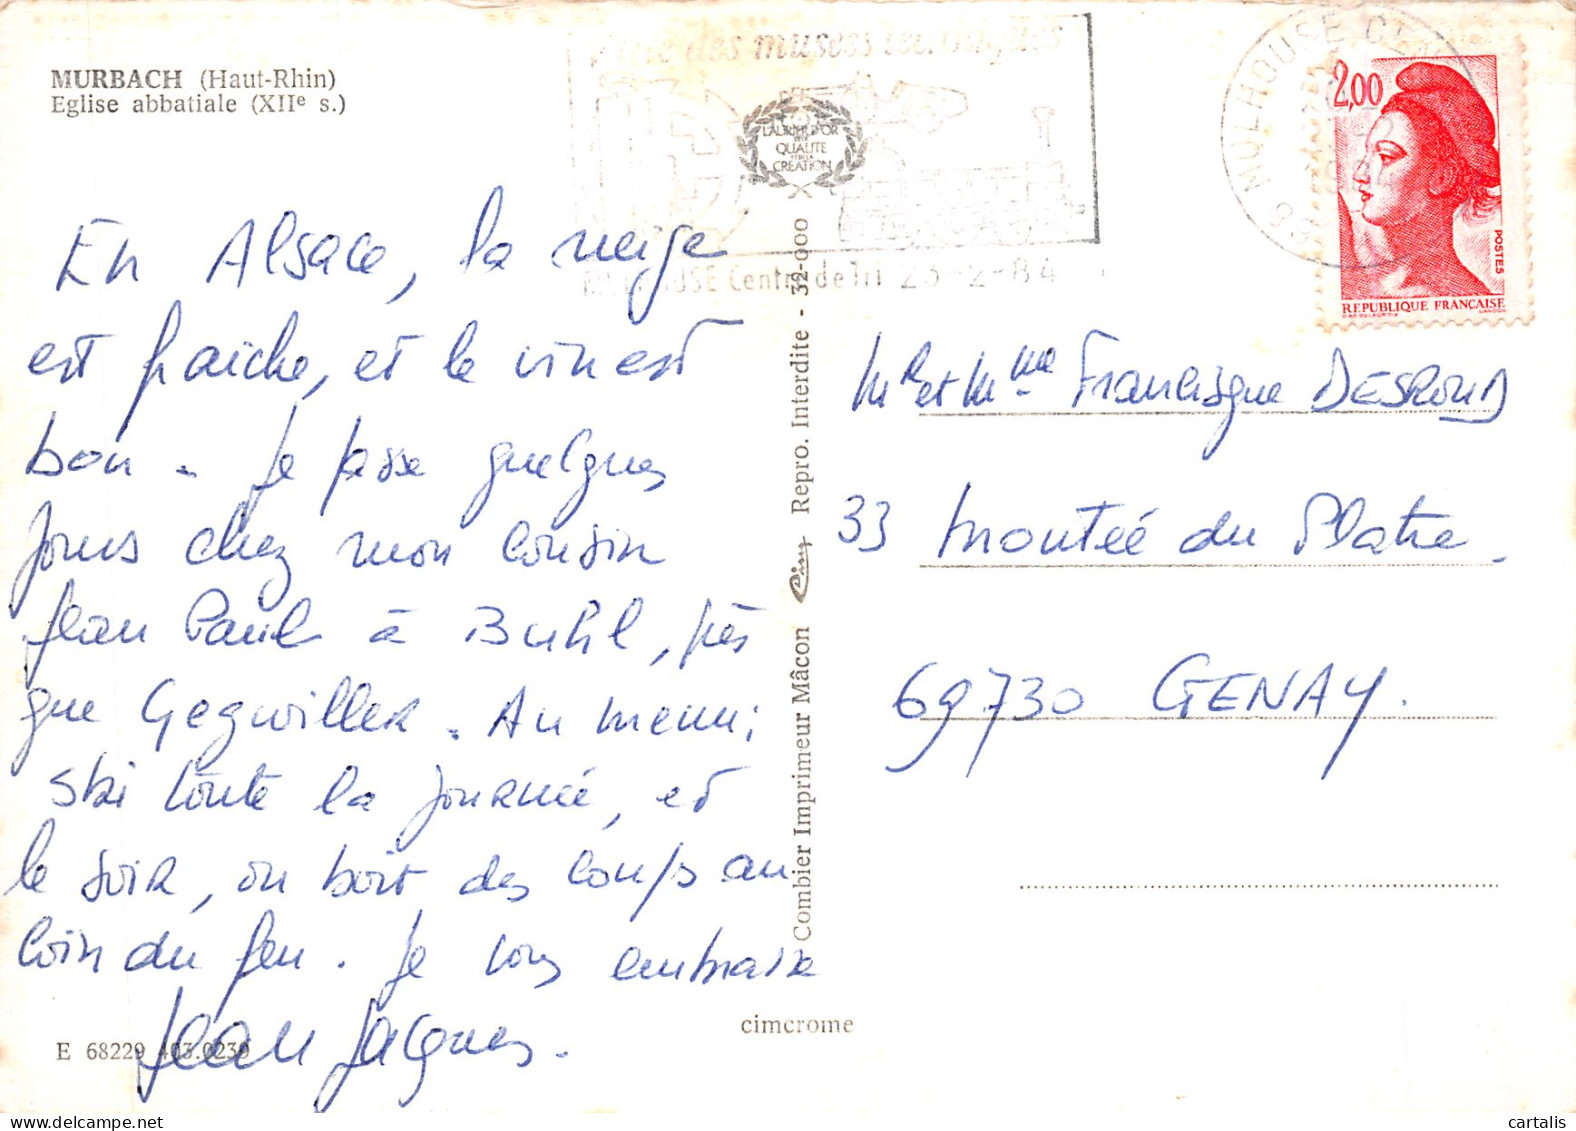 MURBACH (Haut-Rhin)
Eglise abbatiale (XIIe s.)
En Alsace, la neige
est fraîche, et le vin est
bon. Je passe quelques
jours chez mon cousin
Jean Paul à Buhl, près
que Gegwiller. Au menu;
ski toute la journée, et
le soir, on boit des coups au
coin du feu. Je vous embrasse
Jean Jacques.
E 68229 403.0239
cimcrome
Combier Imprimeur Mâcon Cim Repro. Interdite - 32-000
LAURIER D'OR
DE LA
QUALITE
ET DE LA
CREATION
Ville des musées techniques
MULHOUSE Centre de Tri 23-2-84
68 MULHOUSE
2,00
POSTES
REPUBLIQUE FRANÇAISE
Mr et Mme Francisque DESROUD
33 Montée du Platre.
69730 GENAY.
cartalis